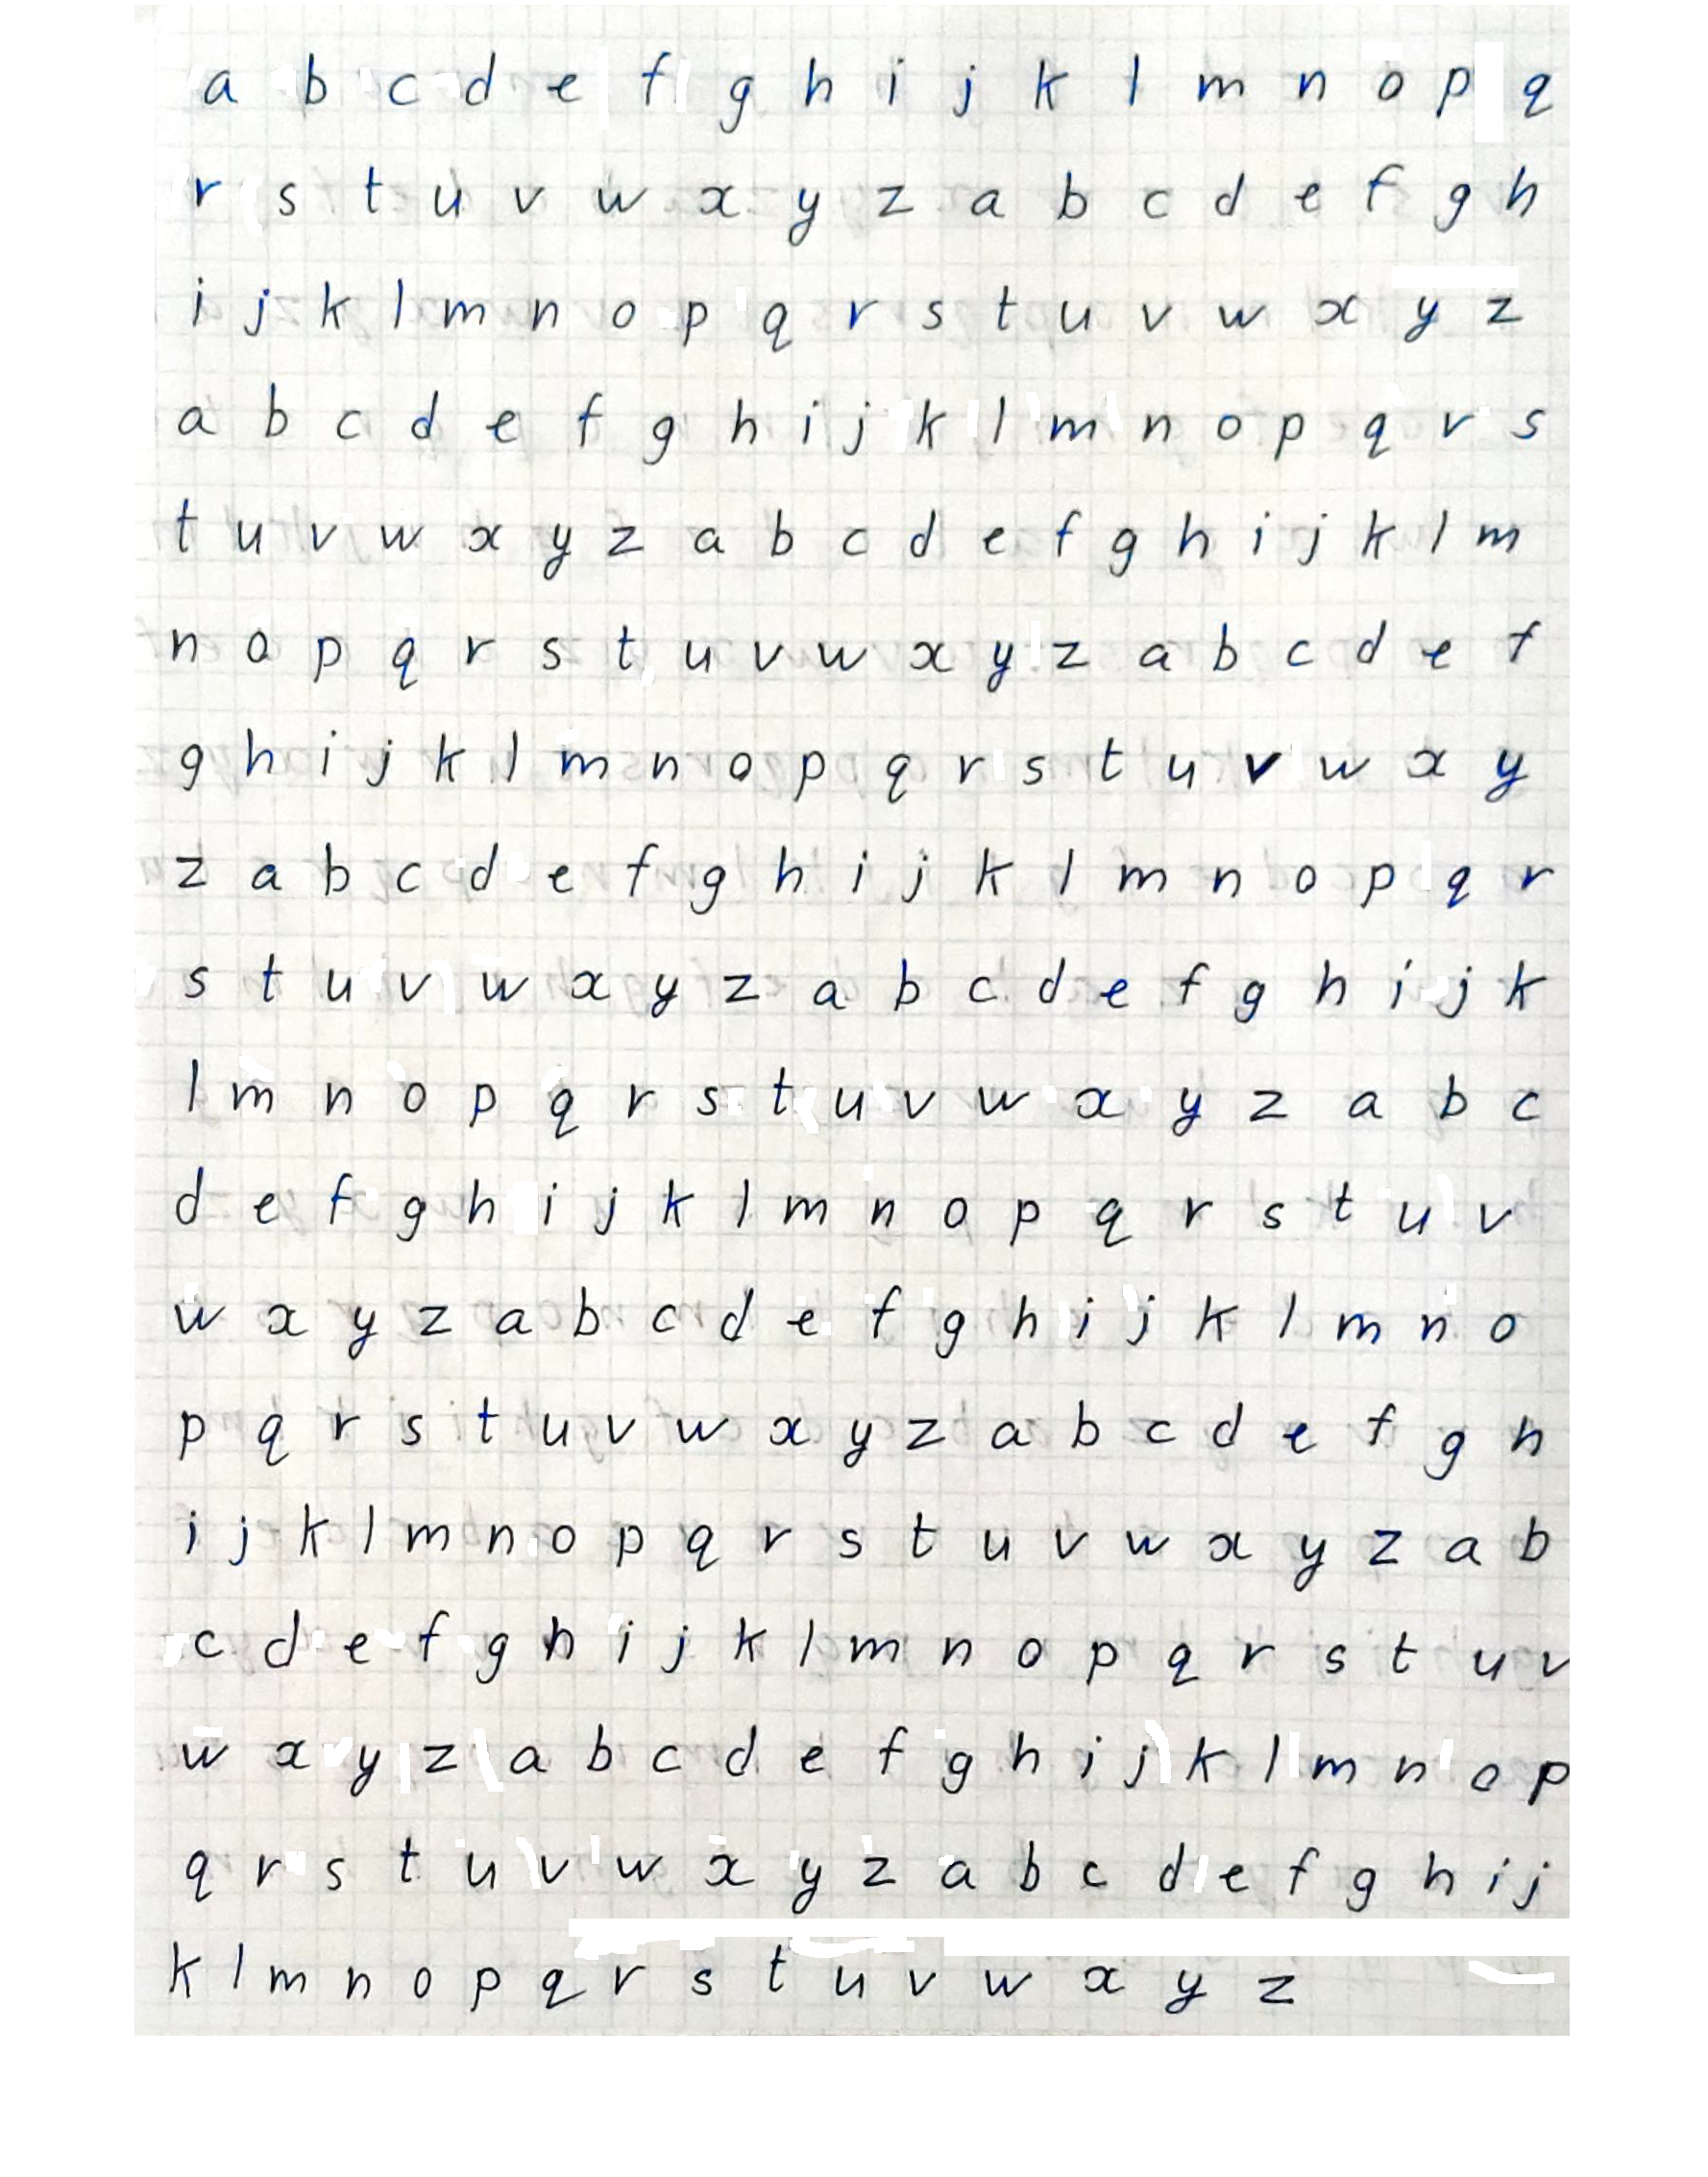 a b c d e f g h i j k l m n o p q
r s t u v w x y z a b c d e f g h
i j k l m n o p q r s t u v w x y z
a b c d e f g h i j k l m n o p q r s
t u v w x y z a b c d e f g h i j k l m
n o p q r s t u v w x y z a b c d e f
g h i j k l m n o p q r s t u v w x y
z a b c d e f g h i j k l m n o p q r
s t u v w x y z a b c d e f g h i j k
l m n o p q r s t u v w x y z a b c
d e f g h i j k l m n o p q r s t u v
w x y z a b c d e f g h i j k l m n o
p q r s t u v w x y z a b c d e f g h
i j k l m n o p q r s t u v w x y z a b
c d e f g h i j k l m n o p q r s t u v
w x y z a b c d e f g h i j k l m n o p
q r s t u v w x y z a b c d e f g h i j
k l m n o p q r s t u v w x y z